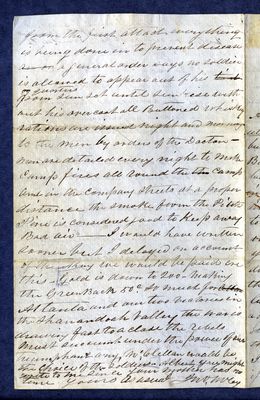 from the first attact everything
is being done in to prevent disease
in a general order says no soldier
is allowed to appear out of his
quarters
from sun set until sun rese with
out his overcoat all Buttoned whisky
rations are issued night and morning
to the men by orders of the Doctor
men are detailed every night to make
Camp fires all Round the Camp
and in the Company Streets at a proper
distance the smoke from the Pitch
Pine is considered good to Keep away
Bad air I would have written
sooner but I delayed on account
of the we would be paid on
this Gold is down to 200 making
the Green Back 50 cts So much for
Atlanta and our two victories in
the Shanandoah Valley the war is
drawing fast to a close the rebels
must succumb under the power of our
triumphant army McClellan would be
the choice of the soldiers
write to me
some yours as usual Jno